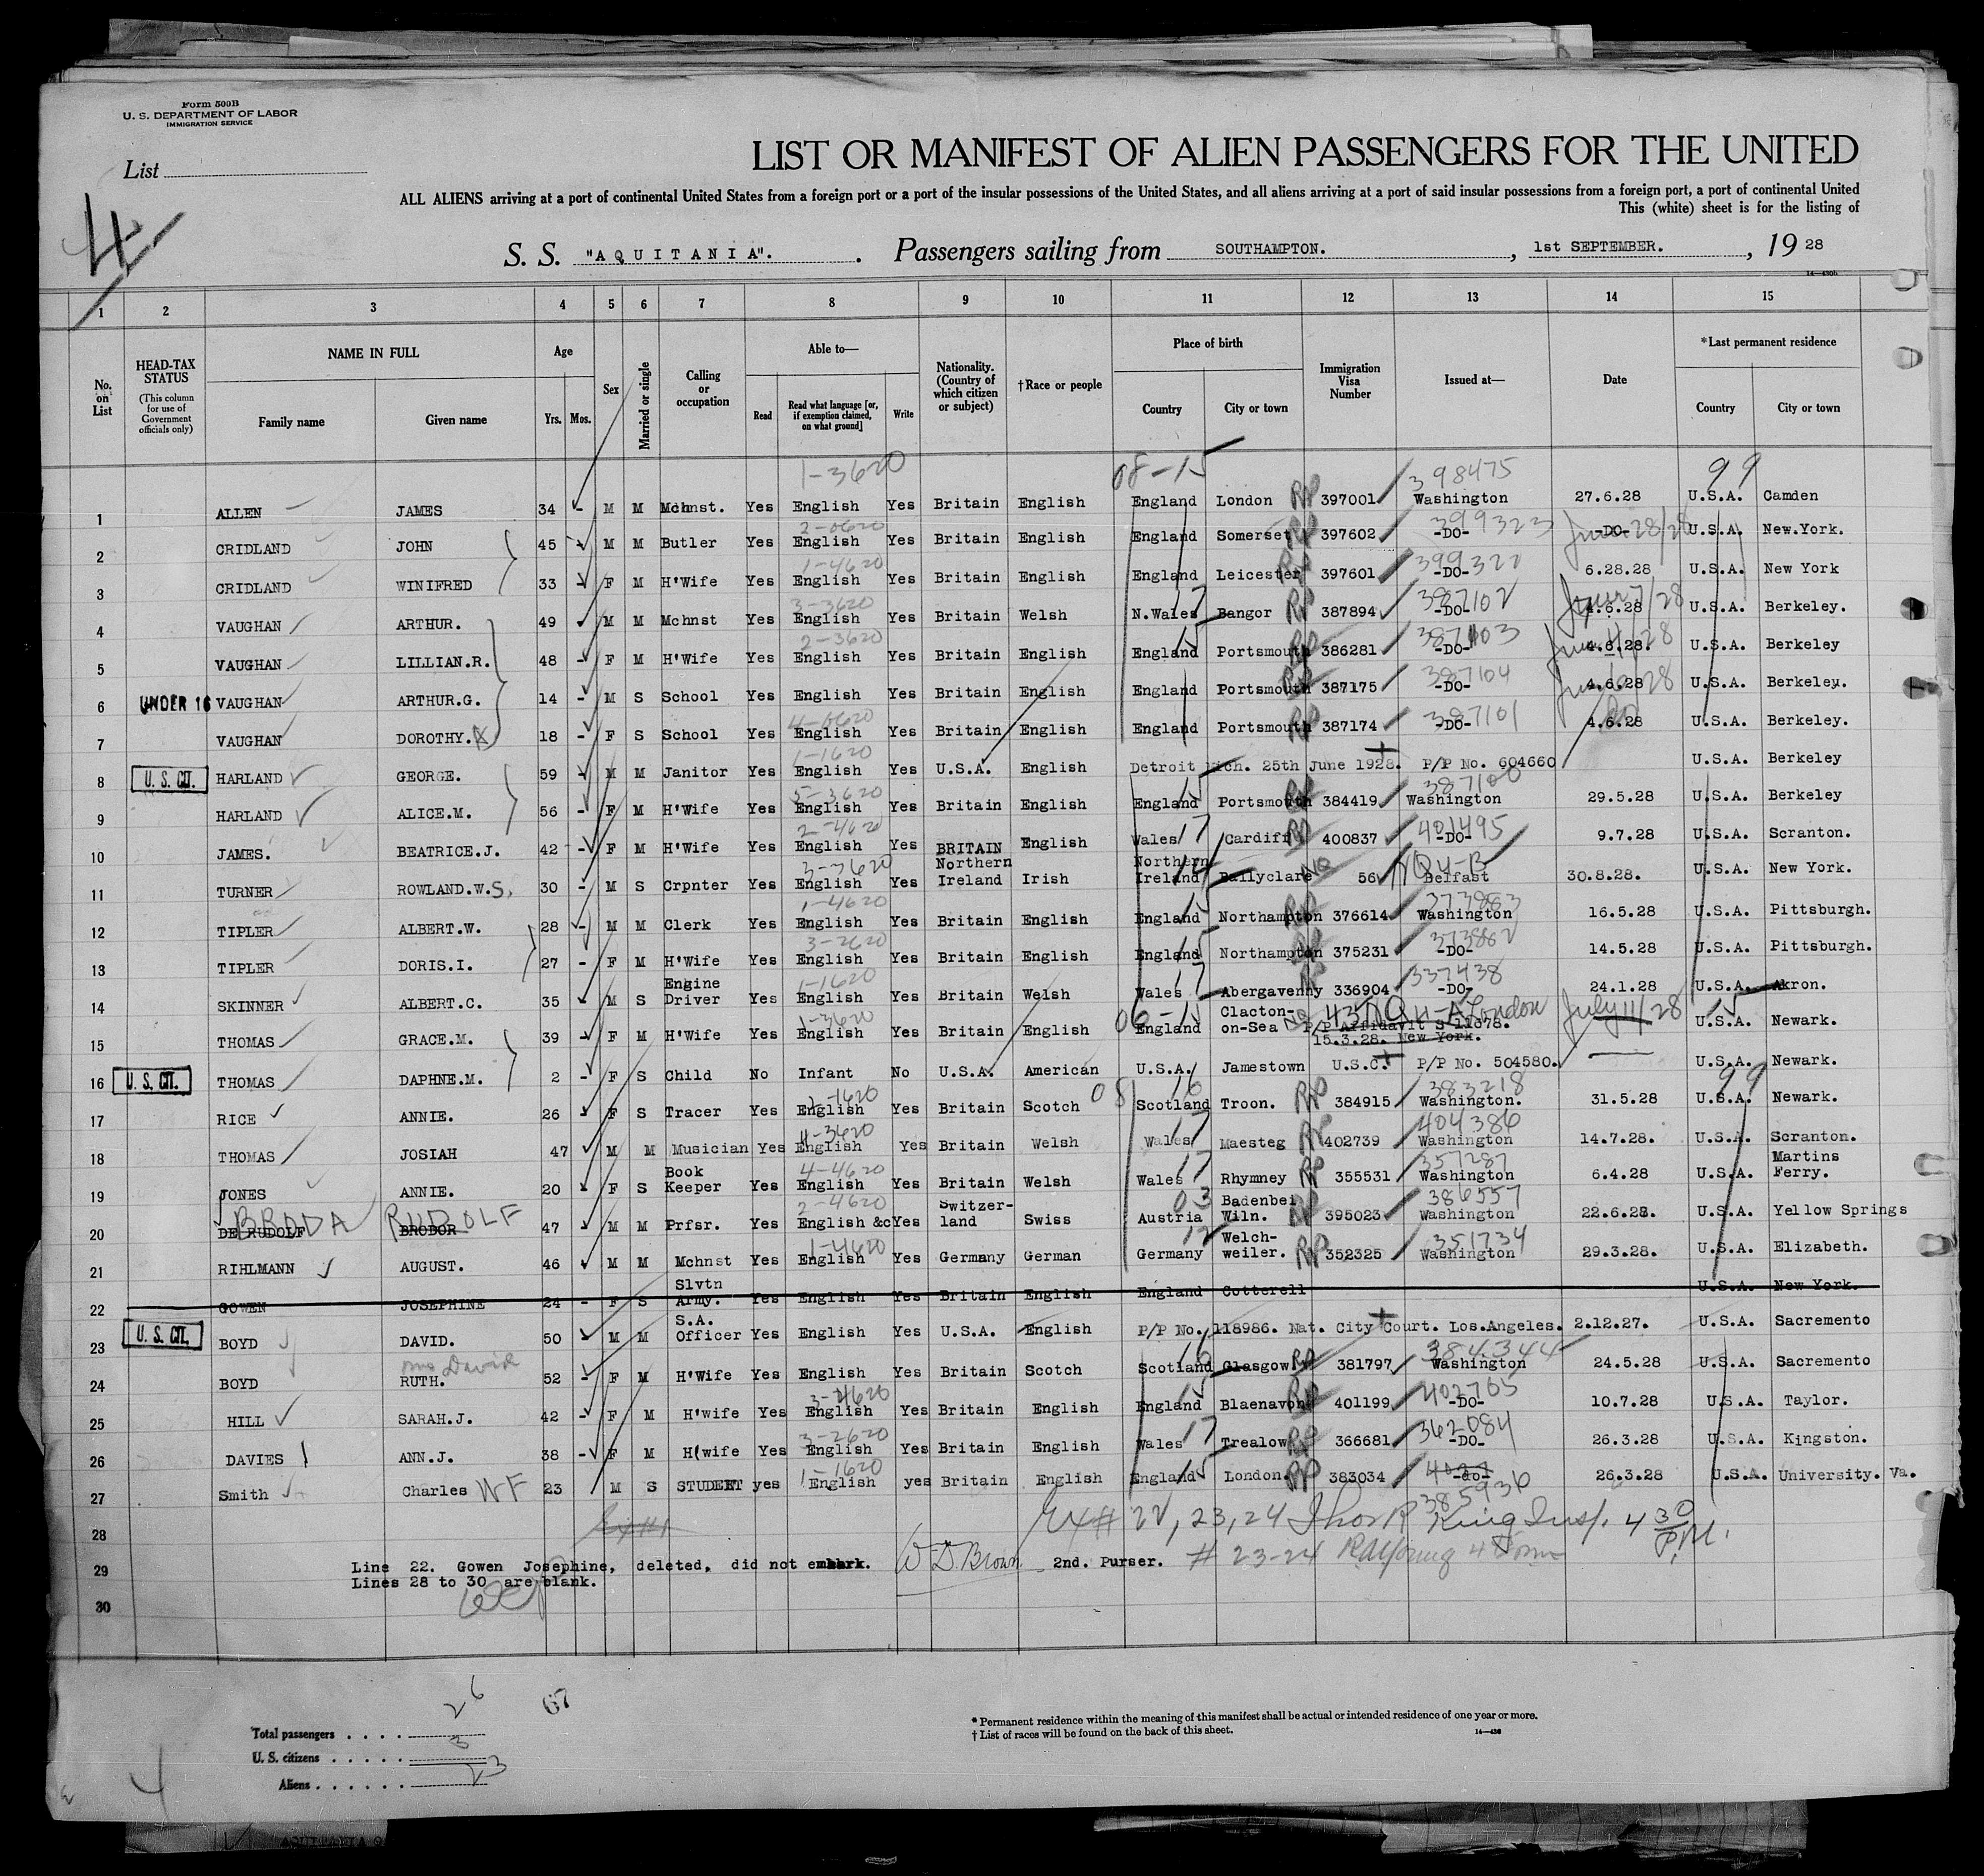 Form 500B
U. S. DEPARTMENT OF LABOR
IMMIGRATION SERVICE
List
4
LIST OR MANIFEST OF ALIEN PASSENGERS FOR THE UNITED
ALL ALIENS arriving at a port of continental United States from a foreign port or a port of the insular possessions of the United States, and all aliens arriving at a port of said insular possessions from a foreign port, a port of continental United
This (white) sheet is for the listing of
S. S. "AQUITANIA". Passengers sailing from SOUTHAMPTON. , 1st SEPTEMBER. , 19 28
1 2 3 4 5 6 7 8 9 10 11 12 13 14 15
No. on List
HEAD-TAX STATUS (This column for use of Government officials only)
NAME IN FULL Family name Given name
Age Yrs. Mos.
Sex
Married or single
Calling or occupation
Able to— Read Read what language [or, if exemption claimed, on what ground] Write
Nationality. (Country of which citizen or subject)
†Race or people
Place of birth Country City or town
Immigration Visa Number
Issued at—
Date
*Last permanent residence Country City or town
1-3620 08-15 398475 99
1 ALLEN JAMES 34 - M M Mchnst. Yes English Yes Britain English England London RP 397001 Washington 27.6.28 U.S.A. Camden
2-0620 399323
2 CRIDLAND JOHN 45 - M M Butler Yes English Yes Britain English England Somerset RP 397602 -DO- -DO- June 28/28 U.S.A. New.York.
1-4620 399322
3 CRIDLAND WINIFRED 33 - F M H'Wife Yes English Yes Britain English England Leicester RP 397601 -DO- 6.28.28 U.S.A. New York
3-3620 17 387102
4 VAUGHAN ARTHUR. 49 M M Mchnst Yes English Yes Britain Welsh N.Wales Bangor RP 387894 -DO- 4.6.28 U.S.A. Berkeley.
2-3620 15 387103
5 VAUGHAN LILLIAN.R. 48 - F M H'Wife Yes English Yes Britain English England Portsmouth RP 386281 -DO- 4.6.28. U.S.A. Berkeley
387104
6 UNDER 16 VAUGHAN ARTHUR.G. 14 - M S School Yes English Yes Britain English England Portsmouth 387175 -DO- 4.6.28 U.S.A. Berkeley.
4-0620 387101
7 VAUGHAN DOROTHY. 18 - F S School Yes English Yes Britain English England Portsmouth RP 387174 -DO- 4.6.28 U.S.A. Berkeley.
1-1620
8 U. S. CIT. HARLAND GEORGE. 59 - M M Janitor Yes English Yes U.S.A. English Detroit Mich. 25th June 1928. P/P No. 604660 U.S.A. Berkeley
5-3620 15 387100
9 HARLAND ALICE.M. 56 - F M H'Wife Yes English Yes Britain English England Portsmouth 384419 Washington 29.5.28 U.S.A. Berkeley
2-4620 17 401495
10 JAMES. BEATRICE.J. 42 - F M H'Wife Yes English Yes BRITAIN English Wales Cardiff RP 400837 -DO- 9.7.28 U.S.A. Scranton.
3-3620 14 NQ 4-B
11 TURNER ROWLAND.W.S. 30 - M S Crpnter Yes English Yes Northern Ireland Irish Northern Ireland Ballyclare NQ 56 Belfast 30.8.28. U.S.A. New York.
1-4620 15 373863
12 TIPLER ALBERT.W. 28 - M M Clerk Yes English Yes Britain English England Northampton 376614 Washington 16.5.28 U.S.A. Pittsburgh.
3-2620 15 373862
13 TIPLER DORIS.I. 27 - F M H'Wife Yes English Yes Britain English England Northampton 375231 -DO- 14.5.28 U.S.A. Pittsburgh.
1-1620 17 337438
14 SKINNER ALBERT.C. 35 M S Engine Driver Yes English Yes Britain Welsh Wales Abergavenny 336904 -DO- 24.1.28 U.S.A. Akron.
1-3620 06-15 London July 11/28 15
15 THOMAS GRACE.M. 39 - F M H'Wife Yes English Yes Britain English England Clacton-on-Sea P/P Affidavit S 11878. 15.3.28. New York. U.S.A. Newark.
16 U. S. CIT. THOMAS DAPHNE.M. 2 - F S Child No Infant No U.S.A. American U.S.A. Jamestown U.S.C. P/P No. 504580. U.S.A. Newark.
2-1620 08 16 383218 99
17 RICE ANNIE. 26 F S Tracer Yes English Yes Britain Scotch Scotland Troon. RP 384915 Washington. 31.5.28 U.S.A. Newark.
4-3620 17 404386
18 THOMAS JOSIAH 47 M M Musician Yes English Yes Britain Welsh Wales Maesteg RP 402739 Washington 14.7.28. U.S.A. Scranton.
17 357287
19 JONES ANNIE. 20 F S Book Keeper Yes English Yes Britain Welsh Wales Rhymney RP 355531 Washington 6.4.28 U.S.A. Martins Ferry.
4-4620 03 386557
20 BRODA RUDOLF DE RUDOLF BRODOR 47 M M Prfsr. Yes English &c Yes Switzer-land Swiss Austria Badenbei Wiln. 395023 Washington 22.6.28. U.S.A. Yellow Springs
2-4620 12 351734
21 RIHLMANN AUGUST. 46 M M Mchnst Yes English Yes Germany German Germany Welch-weiler. RP 352325 Washington 29.3.28. U.S.A. Elizabeth.
1-4620
22 GOWEN JOSEPHINE 24 - F S Slvtn Army. Yes English Yes Britain English England Cotterell U.S.A. New York.
23 U. S. CIT. BOYD DAVID. 50 M M S.A. Officer Yes English Yes U.S.A. English P/P No. 118986. Nat. City Court. Los.Angeles. 2.12.27. U.S.A. Sacremento
mrs David 16 384344
24 BOYD RUTH. 52 - F M H'Wife Yes English Yes Britain Scotch Scotland Glasgow RP 381797 Washington 24.5.28 U.S.A. Sacremento
3-4620 15 402765
25 HILL SARAH.J. 42 - F M H'wife Yes English Yes Britain English England Blaenavon RP 401199 -DO- 10.7.28 U.S.A. Taylor.
3-2620 17 362084
26 DAVIES ANN.J. 38 - F M H(wife Yes English Yes Britain English Wales Trealow RP 366681 -DO- 26.3.28 U.S.A. Kingston.
1-1620 15 385936
27 Smith Charles WF 23 M S STUDEET yes English yes Britain English England London. RP 383034 -do- 26.3.28 U.S.A. University. Va.
28 Ex# 22, 23, 24 Thos R King Insp. 4 30 P.M.
29 Line 22. Gowen Josephine, deleted, did not embark. W D. Brown 2nd. Purser. # 23-24
Lines 28 to 30 are blank.
30
67
Total passengers . . . . 26
U. S. citizens . . . . . 3
Aliens . . . . . . 23
* Permanent residence within the meaning of this manifest shall be actual or intended residence of one year or more.
† List of races will be found on the back of this sheet.
14—430
4